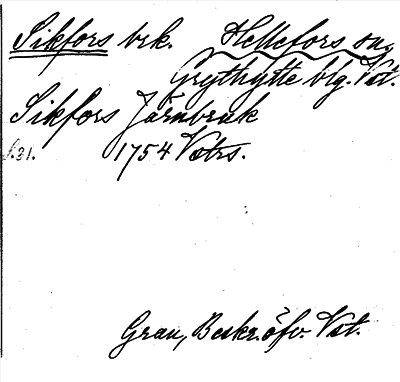 Sikfors brk. Hellefors sn,
Grythytte blg. Vst.
Sikfors Järnbruk
s.31. 1754 Vstrs.
Grau, Beskr. öfv. Vst.